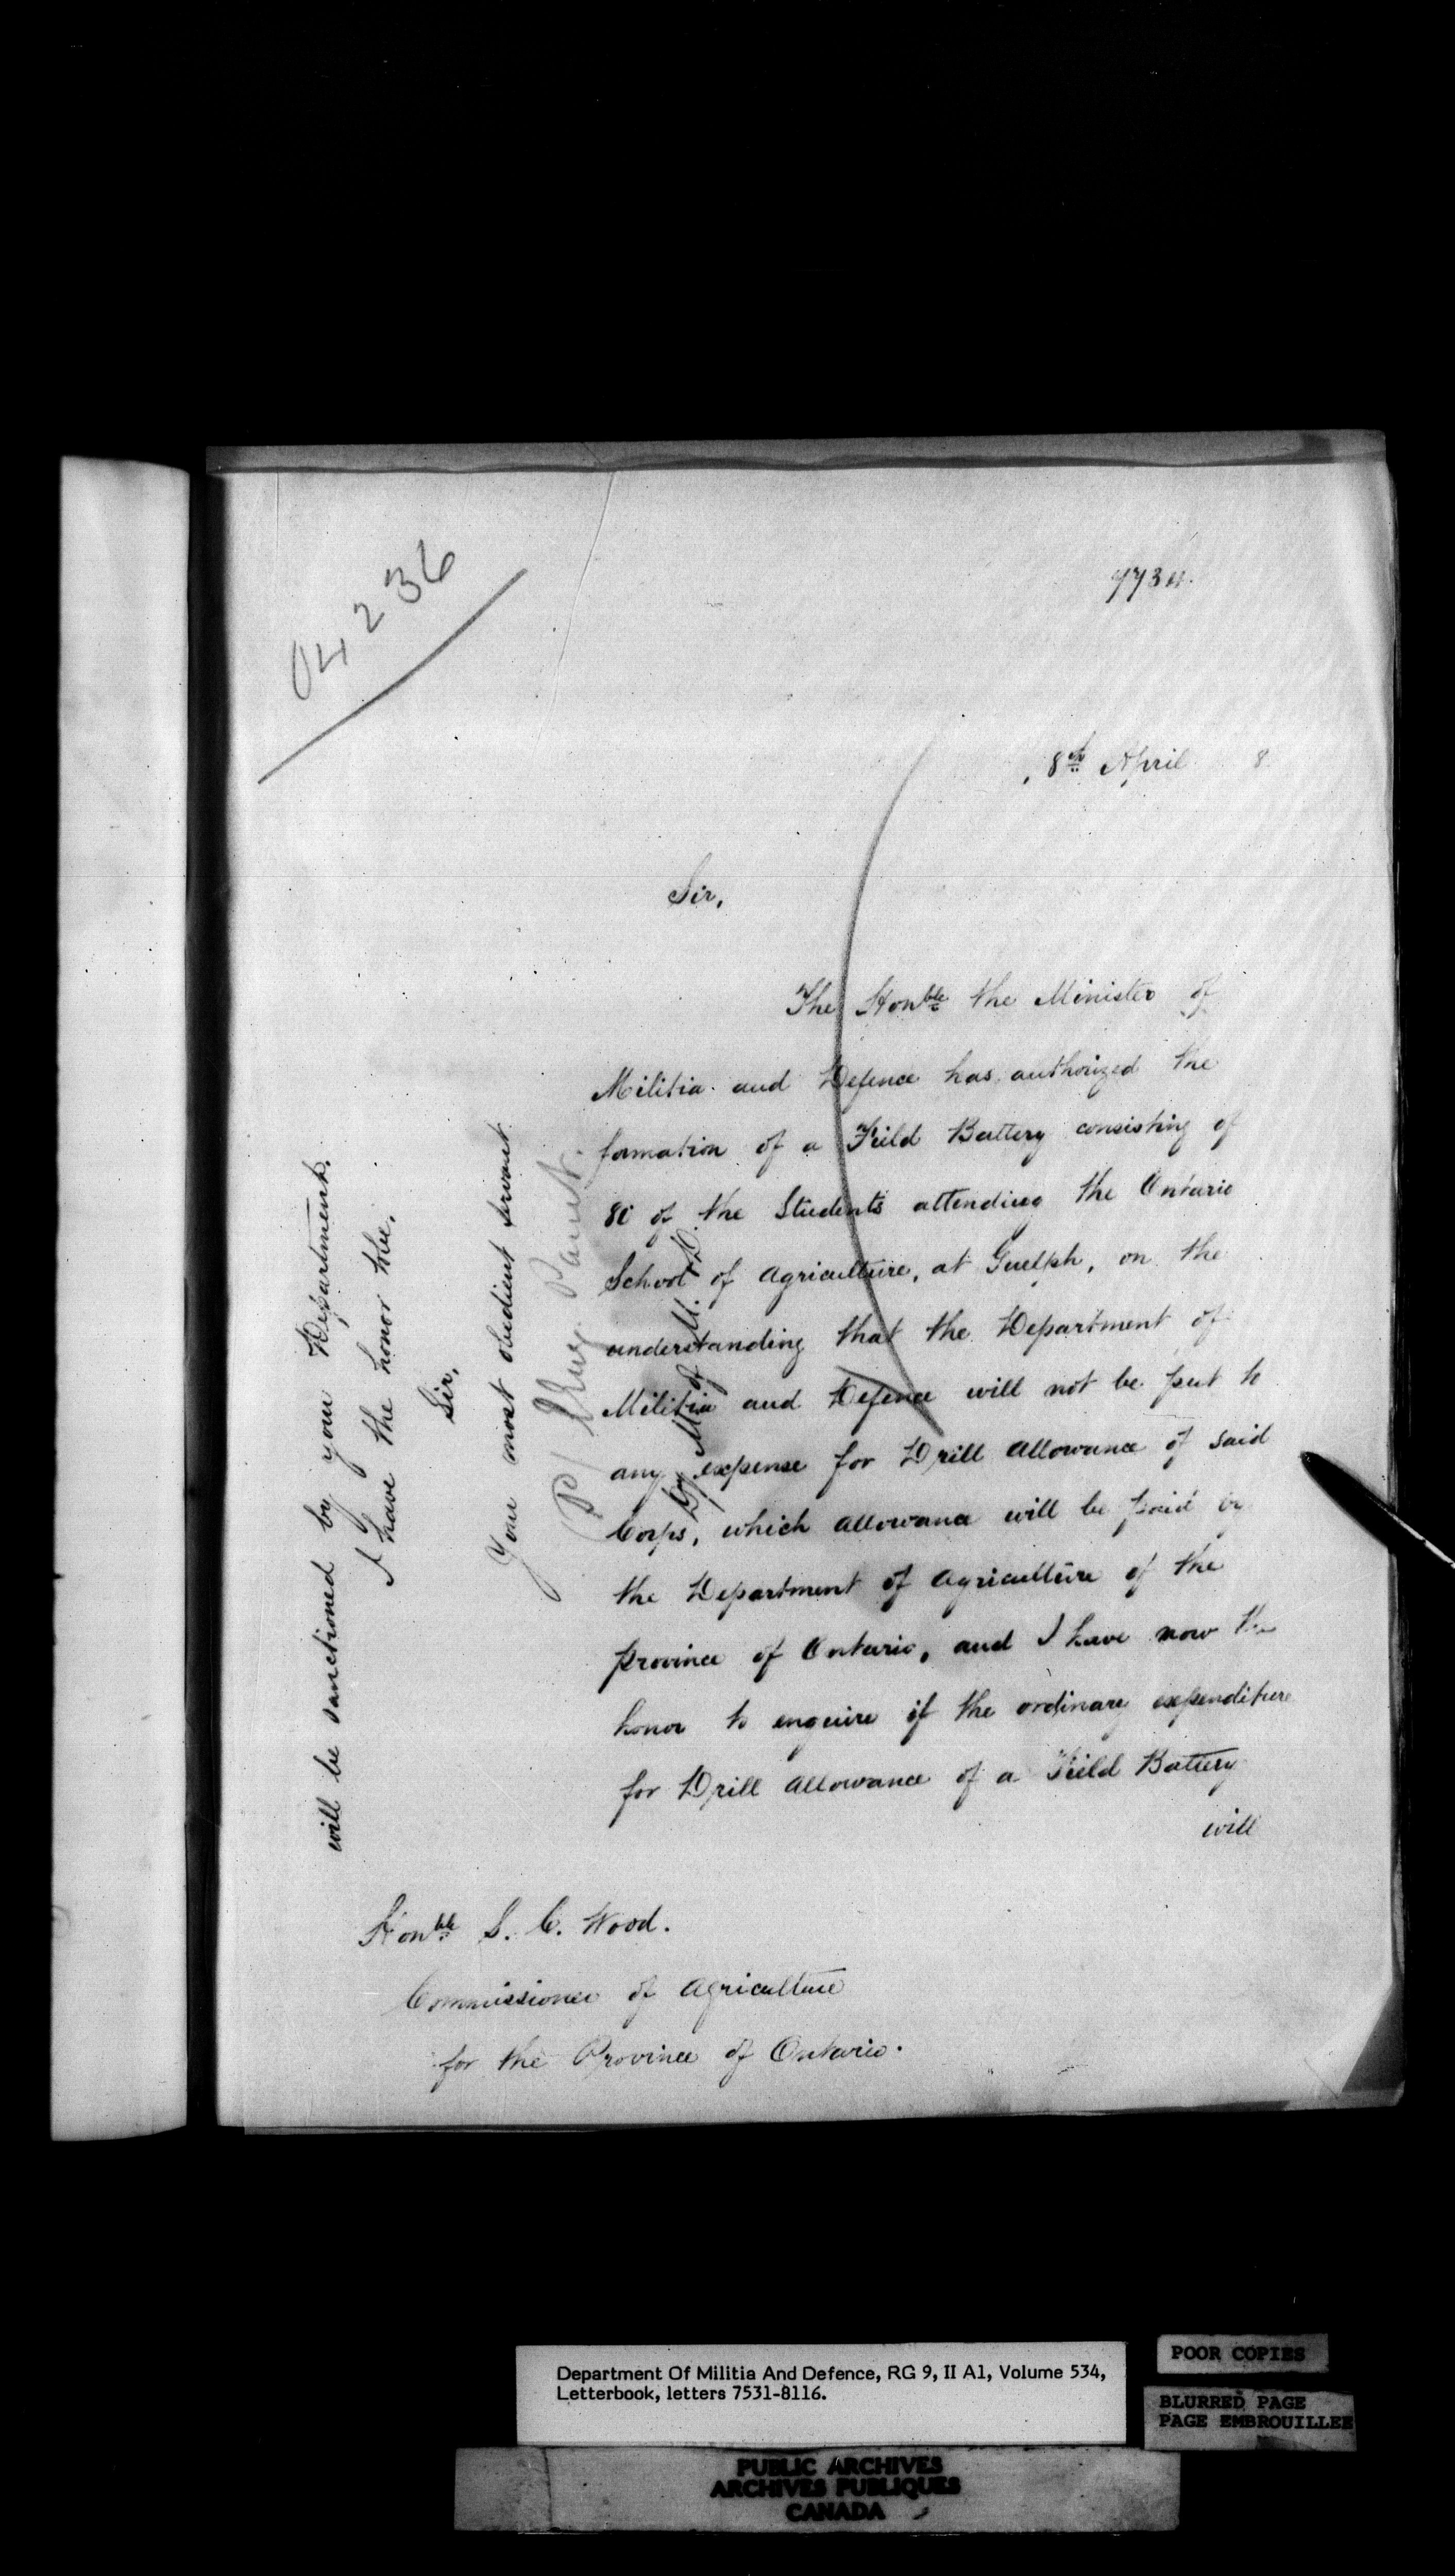 04236
7734.
8th April 8
Sir,
The Honble the Minister of
Militia and Defence has authorized the
formation of a Field Battery consisting of
80 of the Students attending the Ontario
School of Agriculture, at Guelph, on the
understanding that the Department of
Militia and Defence will not be put to
any expense for Drill allowance of said
Corps, which allowance will be paid by
the Department of Agriculture of the
province of Ontario, and I have now the
honor to enquire if the ordinary expenditure
for Drill allowance of a Field Battery
will
Honble S. C. Wood.
Commissioner of Agriculture
for the Province of Ontario.
will be sanctioned by your Department.
I have the honor to be,
Sir,
Your most obedient servant
Eug. Panet.
Dy M of M. & D.
Department Of Militia And Defence, RG 9, II A1, Volume 534,
Letterbook, letters 7531-8116.
POOR COPIES
BLURRED PAGE
PAGE EMBROUILLEE
PUBLIC ARCHIVES
ARCHIVES PUBLIQUES
CANADA